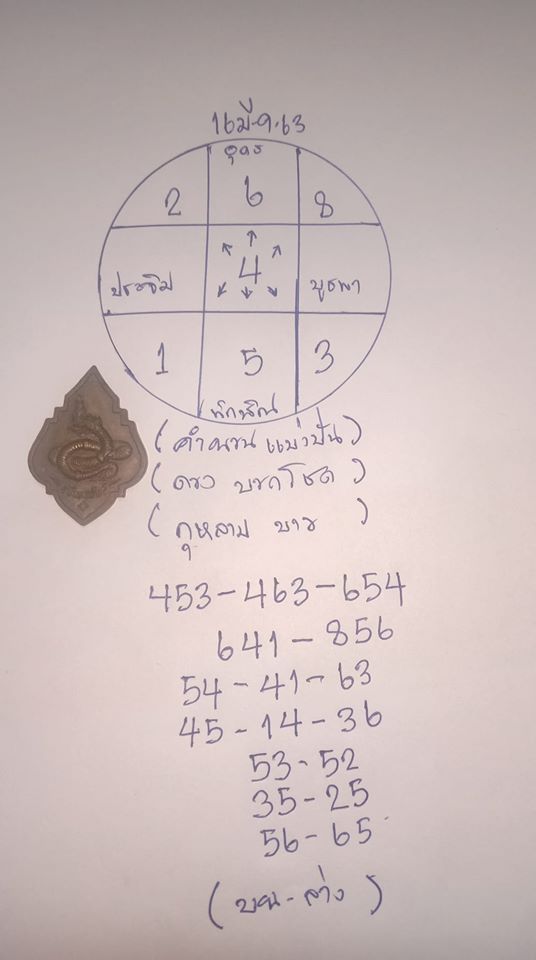 16 มี.ค.63
อุดร
2 6 8
ประจิม 4 บูรพา
1 5 3
ทักษิณ
(คำนวน แม่นปืน)
(ดวง บอกโชค)
(กุหลาบ ขาว)
453-463-654
641-856
54-41-63
45-14-36
53-52
35-25
56-65
(บน-ล่าง)